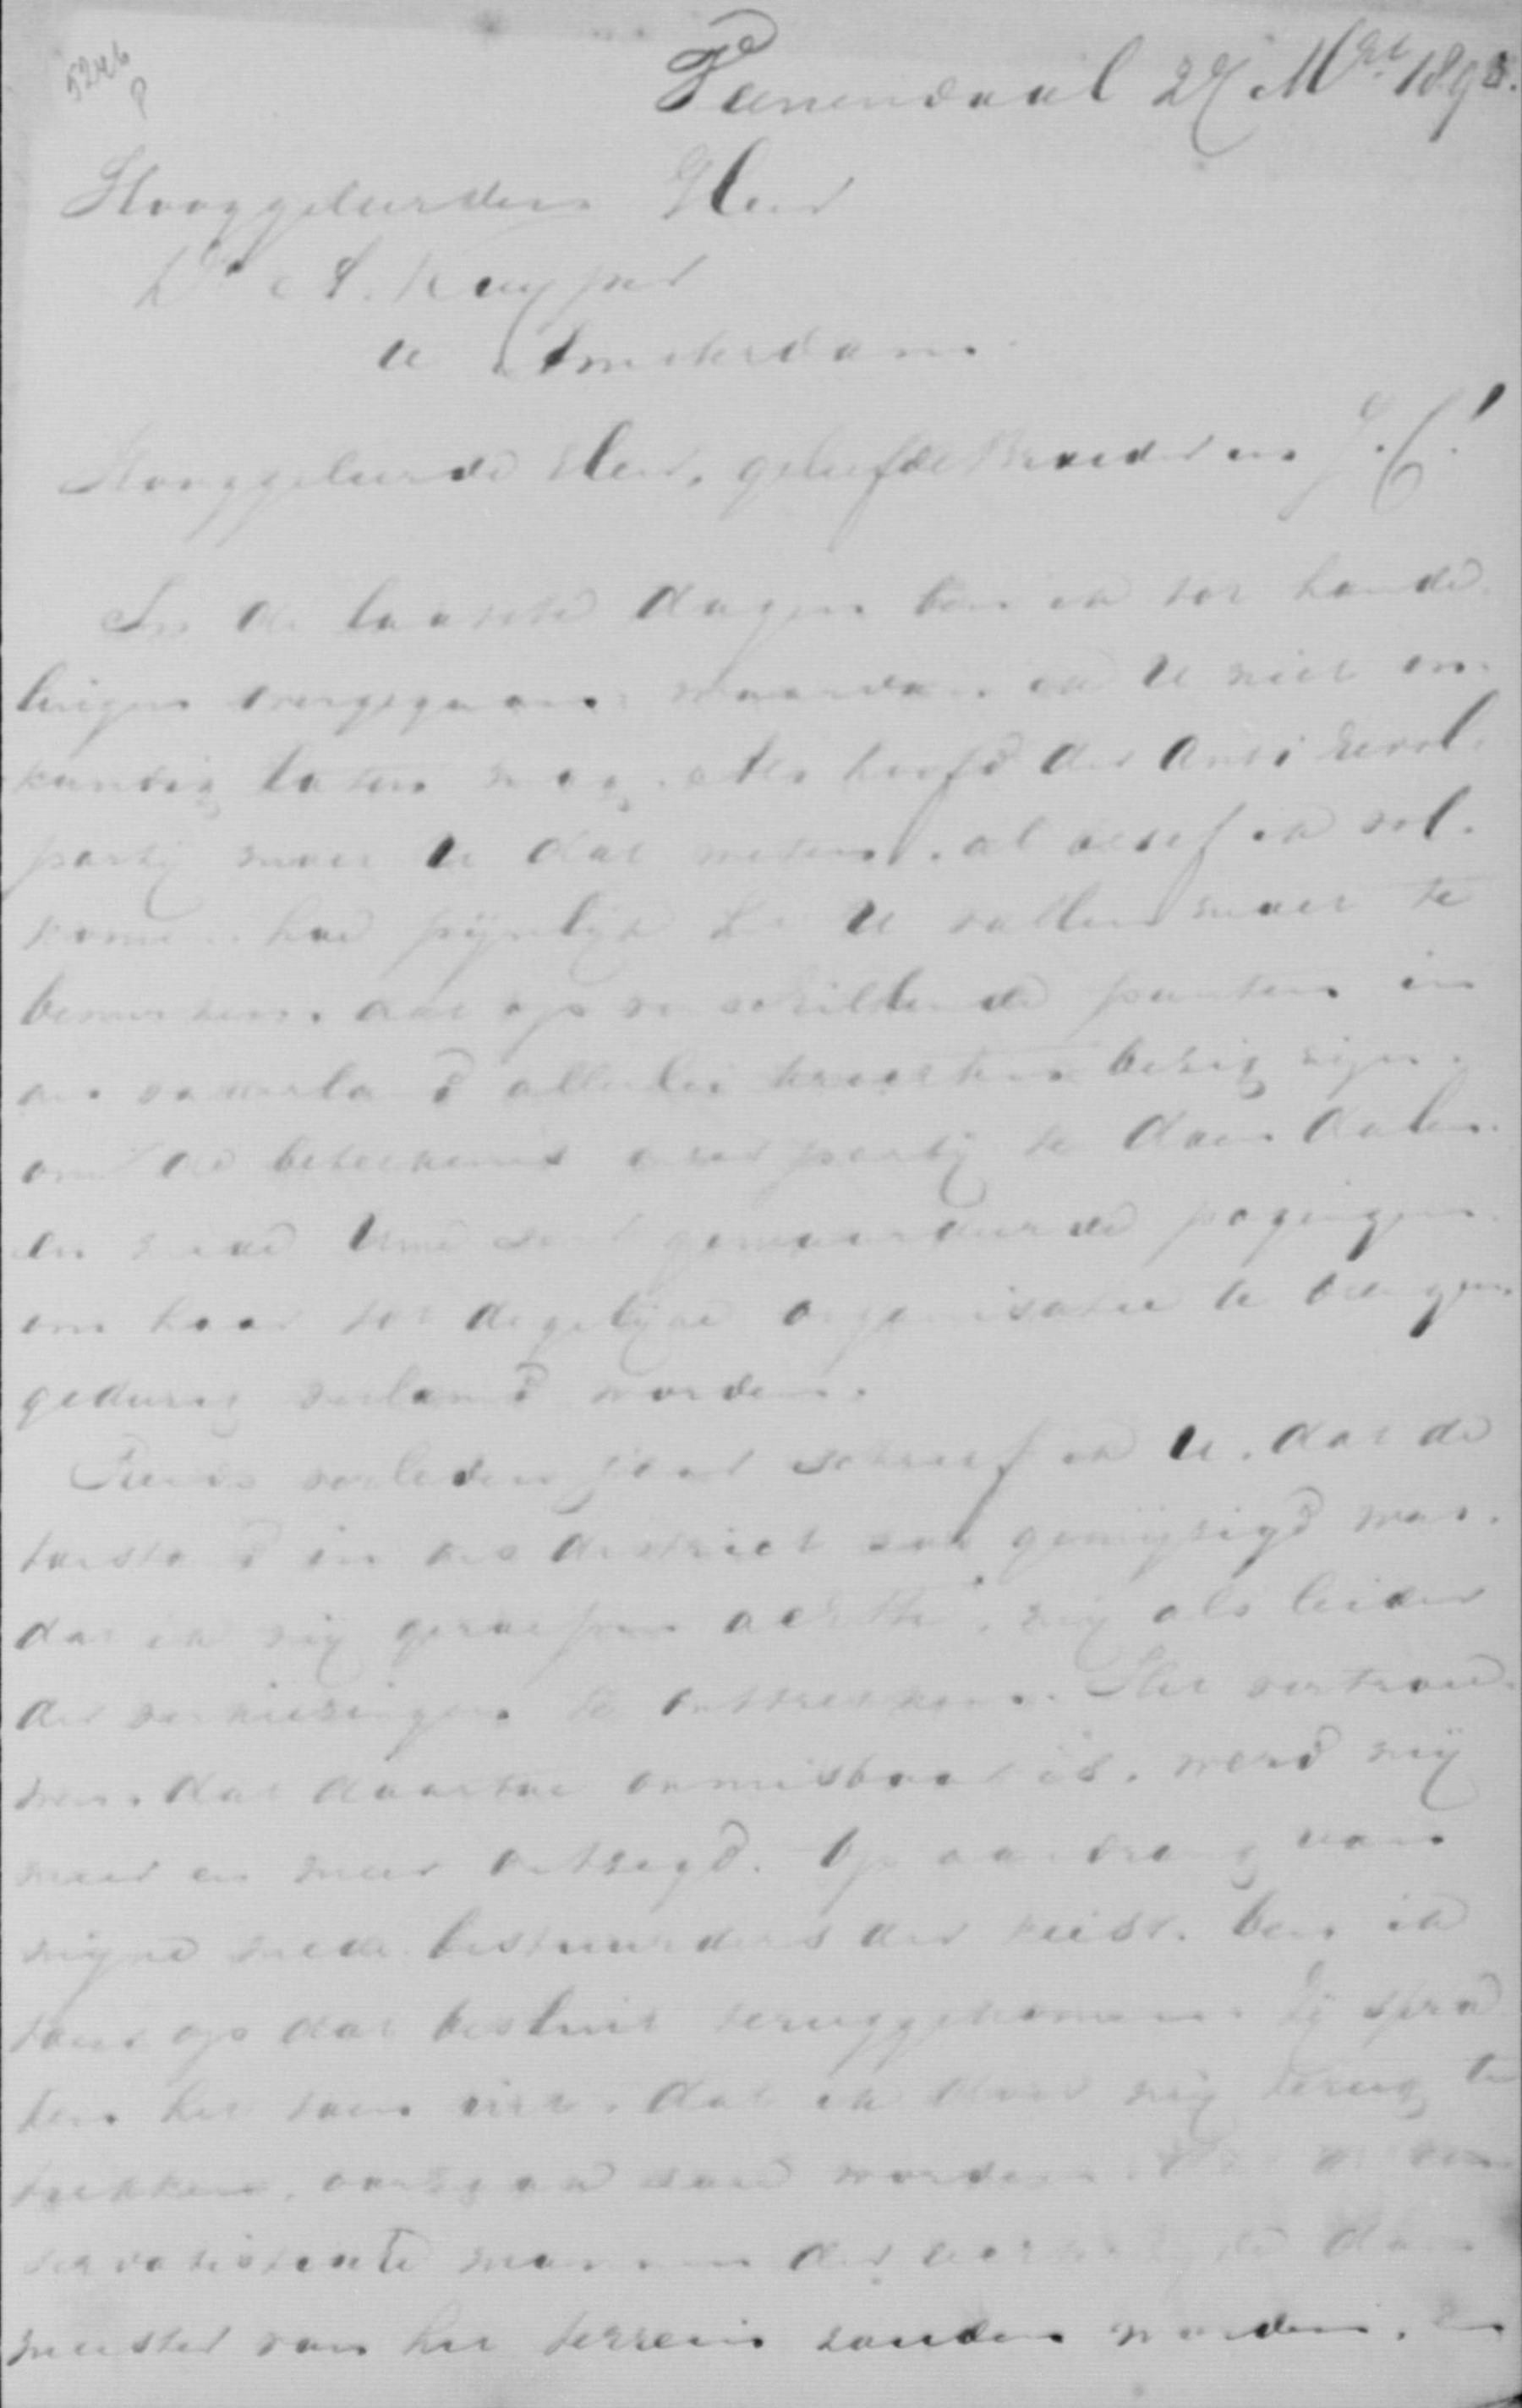 5246
P
Veenendaal 27 Mrt 1893.
Hooggeleerden Heer
Dr A. Kuyper
te Amsterdam.
Hooggeleerde Heer, geliefde Broeder in J. C!
In de laatste dagen ben ik tot hande-
lingen overgegaan, waarvan ik U niet on-
kundig laten mag. Als hoofd der Anti Revol.
partij moet U dat weten, al besef ik vol-
komen hoe pijnlijk het U vallen moet te
bemerken, dat op verschillende punten in
ons vaderland allerlei krachten bezig zijn,
om de beteekenis onzer partij te doen dalen
en mede Uwe zeer gewaardeerde pogingen
om haar tot degelijke organisatie te brengen
gedurig verlamd worden.
Reeds verleden jaar schreef ik U, dat de
toestand in ons district zoo gewijzigd was,
dat ik mij geroepen achtte, mij als leider
der verkiezingen te onttrekken. Het vertrou-
wen, dat daartoe onmisbaar is, werd mij
meer en meer ontzegd. Op aandrang van
mijne mede bestuurders der kiesv. ben ik
toen op dat besluit teruggekomen. Zij spra-
ken het toen uit, dat ik door mij terug te
trekken, oorzaak zou worden dat de con-
servatistische mannen der dan
meester van het terrein zouden worden, en